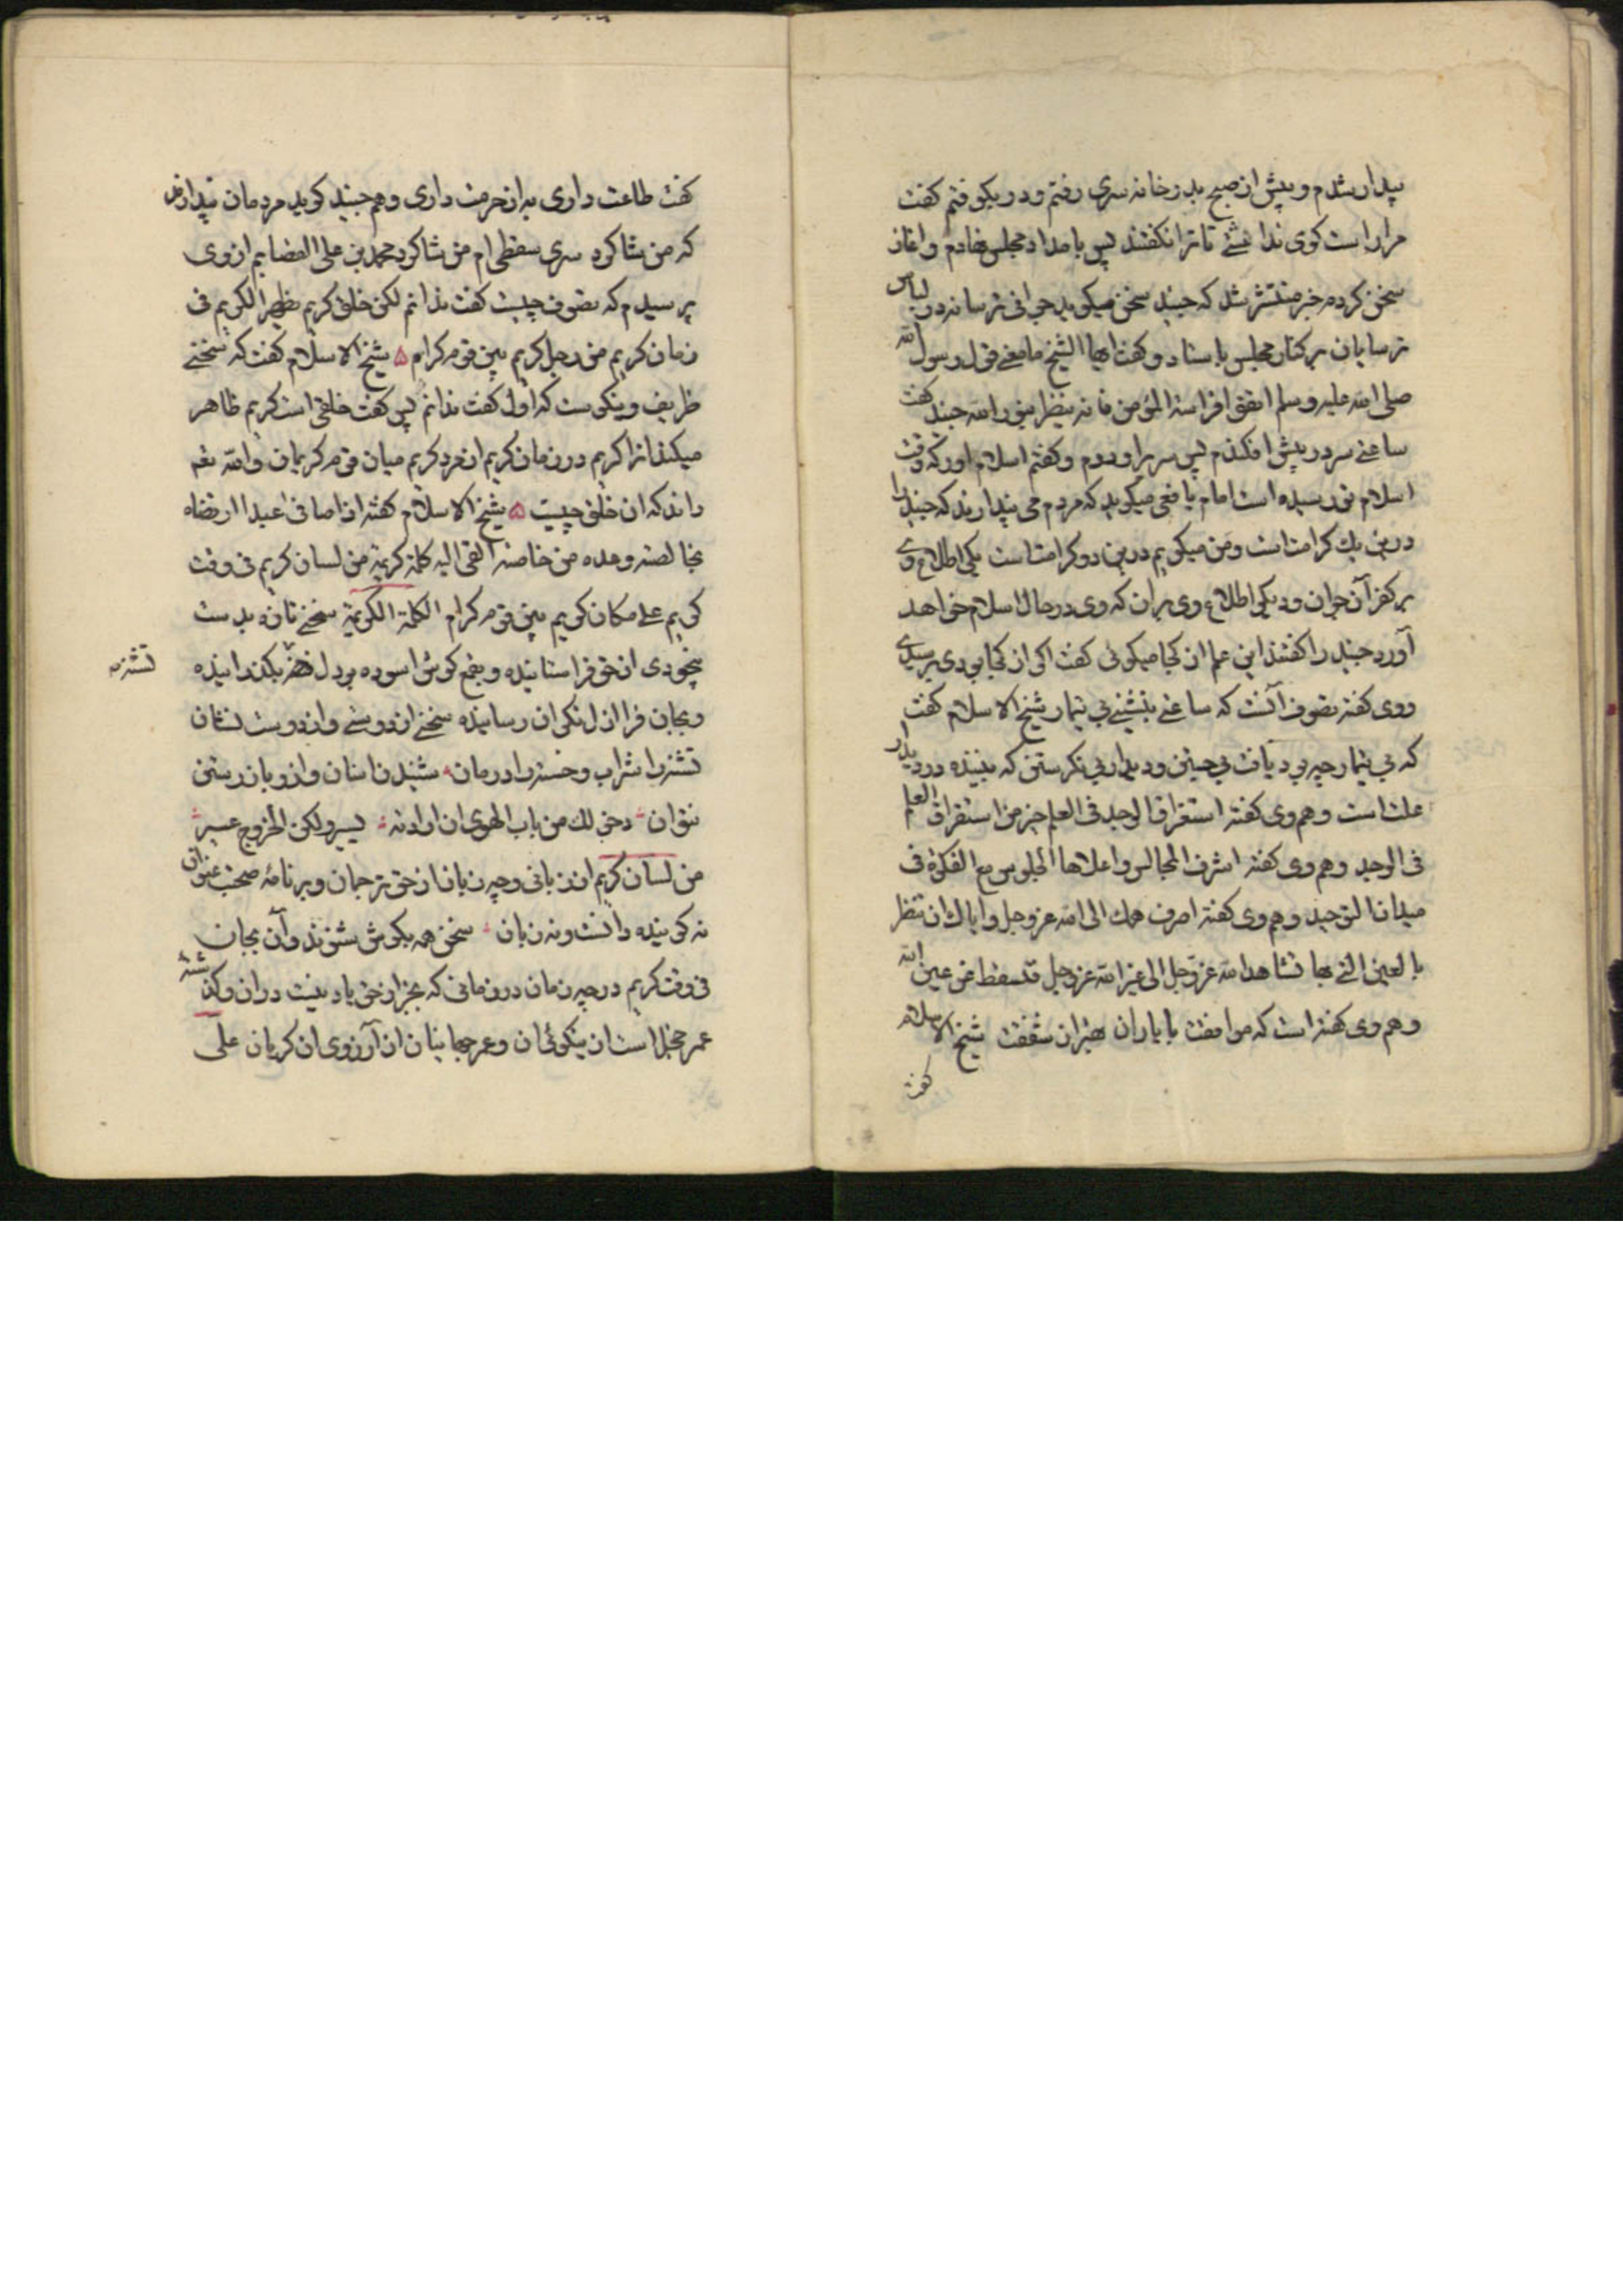 بیدار شدم و پیش از صبح بدر خانه سری رفتم و در بکوفتم گفت
مرا راست گوی نداشتی تا ترا نگفتند پس بامداد مجلس نهادم و آغاز
سخن کردم خبر منتشر شد که جنید سخن میکوید جوانی ترسا نه در لباس
ترسایان بر کنار مجلس باستاد و گفت ایها الشیخ ما معنی قول رسول الله
صلی الله علیه وسلم اتقوا فراسة المؤمن فانه ینظر بنور الله جنید گفت
ساعتی سر در پیش افکندم پس سر براوردم و گفتم اسلام اور که وقت
اسلام تو رسیده است امام یافعی میکوید که مردم می پندارند که جنید را
درین یک کرامت است و من میکویم درین دو کرامت است یکی اطلاع وی
بر کفر آن جوان و دیکر اطلاع وی بران که وی در حال اسلام خواهد
آورد جنید را گفتند این علم از کجا میکوئی گفت اگر از کجا بودی برسیدی
و وی گفته تصوف آنست که ساعتی بنشینی بی تیمار شیخ الاسلام گفت
که بی تیمار چه بود یافت بی جستن و دیدار بی نکرستن که بیننده در دیدار
علت است و هم وی گفته استغراق الوجد فی العلم خیر من استغراق العلم
فی الوجد و هم وی گفته اشرف المجالس واعلاها الجلوس مع الفکرة فی
میدان التوحید و هم وی گفته اصرف همک الی الله عز وجل وایاک ان تنظر
بالعین التی بها تشاهد الله عز وجل الی غیر الله عز وجل فتسقط عن عین الله
و هم وی گفته است که موافقت با یاران بهتر از شفقت شیخ الاسلام
گفت
گفت طاعت داری به از حرمت داری و هم جنید کوید مردمان پندارند
که من شاکرد سری سقطی ام من شاکرد محمد بن علی القصابم از وی
پرسیدم که تصوف چیست گفت ندانم لکن خلق کریم یظهره الکریم فی
زمان کریم من رجل کریم بین قوم کرام ۵ شیخ الاسلام گفت که سخنی
ظریف و نیکوست که اول گفت ندانم پس گفت خلقی است کریم ظاهر
میکند انرا کریم در زمان کریم از مرد کریم میان قوم کریمان والله نعم
داند که ان خلق چیست ۵ شیخ الاسلام گفته اذا صافی عبدا ارتضاه
بخالصته وعده من خاصته القی الیه کلمة کریمة من لسان کریم فی وقت
کریم علی مکان کریم بین قوم کرام الکلمة الکریمة سخنی تازه بدست
بیخودی از حق فراستانیده و بفم کوش اسوده بر دل تشنه بگذرانیده
تشنه
و بجان فرا ازل نکران رسانیده سخنی از دوستی وان دوست نشان
تشنه را شراب و خسته را درمان شنیدن اسان وازو باز رستن
نتوان دخولک من باب الهوی ان اردته یسیر ولکن الخروج عسیر
من لسان کریم از زبانی و چه زبان از حق ترجمان و بر نامه صحبت عنوان
نه کوینده دانست و نه زبان سخن همه بکوش شنوند و آن بجان
فی وقت کریم در چه زمان در زمانی که بجز از حق یاد نیست دران و گذشته
عمر خجل است از نیکوئی ان و عمر جهانیان از آرزوی ان کریان علی